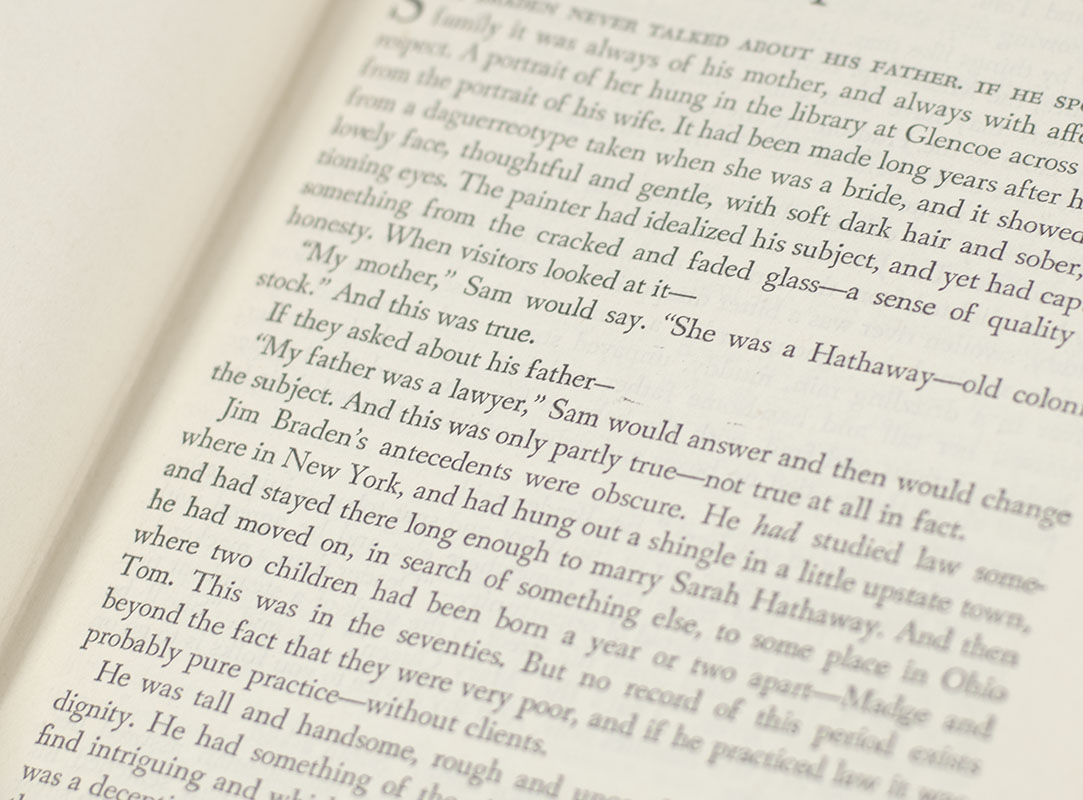 S BRADEN NEVER TALKED ABOUT HIS FATHER. IF HE SPO
family it was always of his mother, and always with affe
respect. A portrait of her hung in the library at Glencoe across
from the portrait of his wife. It had been made long years after h
from a daguerreotype taken when she was a bride, and it showed
lovely face, thoughtful and gentle, with soft dark hair and sober,
tioning eyes. The painter had idealized his subject, and yet had cap
something from the cracked and faded glass—a sense of quality
honesty. When visitors looked at it—
“My mother,” Sam would say. “She was a Hathaway—old coloni
stock.” And this was true.
If they asked about his father—
“My father was a lawyer,” Sam would answer and then would change
the subject. And this was only partly true—not true at all in fact.
Jim Braden’s antecedents were obscure. He had studied law some-
where in New York, and had hung out a shingle in a little upstate town,
and had stayed there long enough to marry Sarah Hathaway. And then
he had moved on, in search of something else, to some place in Ohio
where two children had been born a year or two apart—Madge and
Tom. This was in the seventies. But no record of this period exists
beyond the fact that they were very poor, and if he practiced law it was
probably pure practice—without clients.
He was tall and handsome, rough and
dignity. He had something of the
find intriguing and which
was a decepti